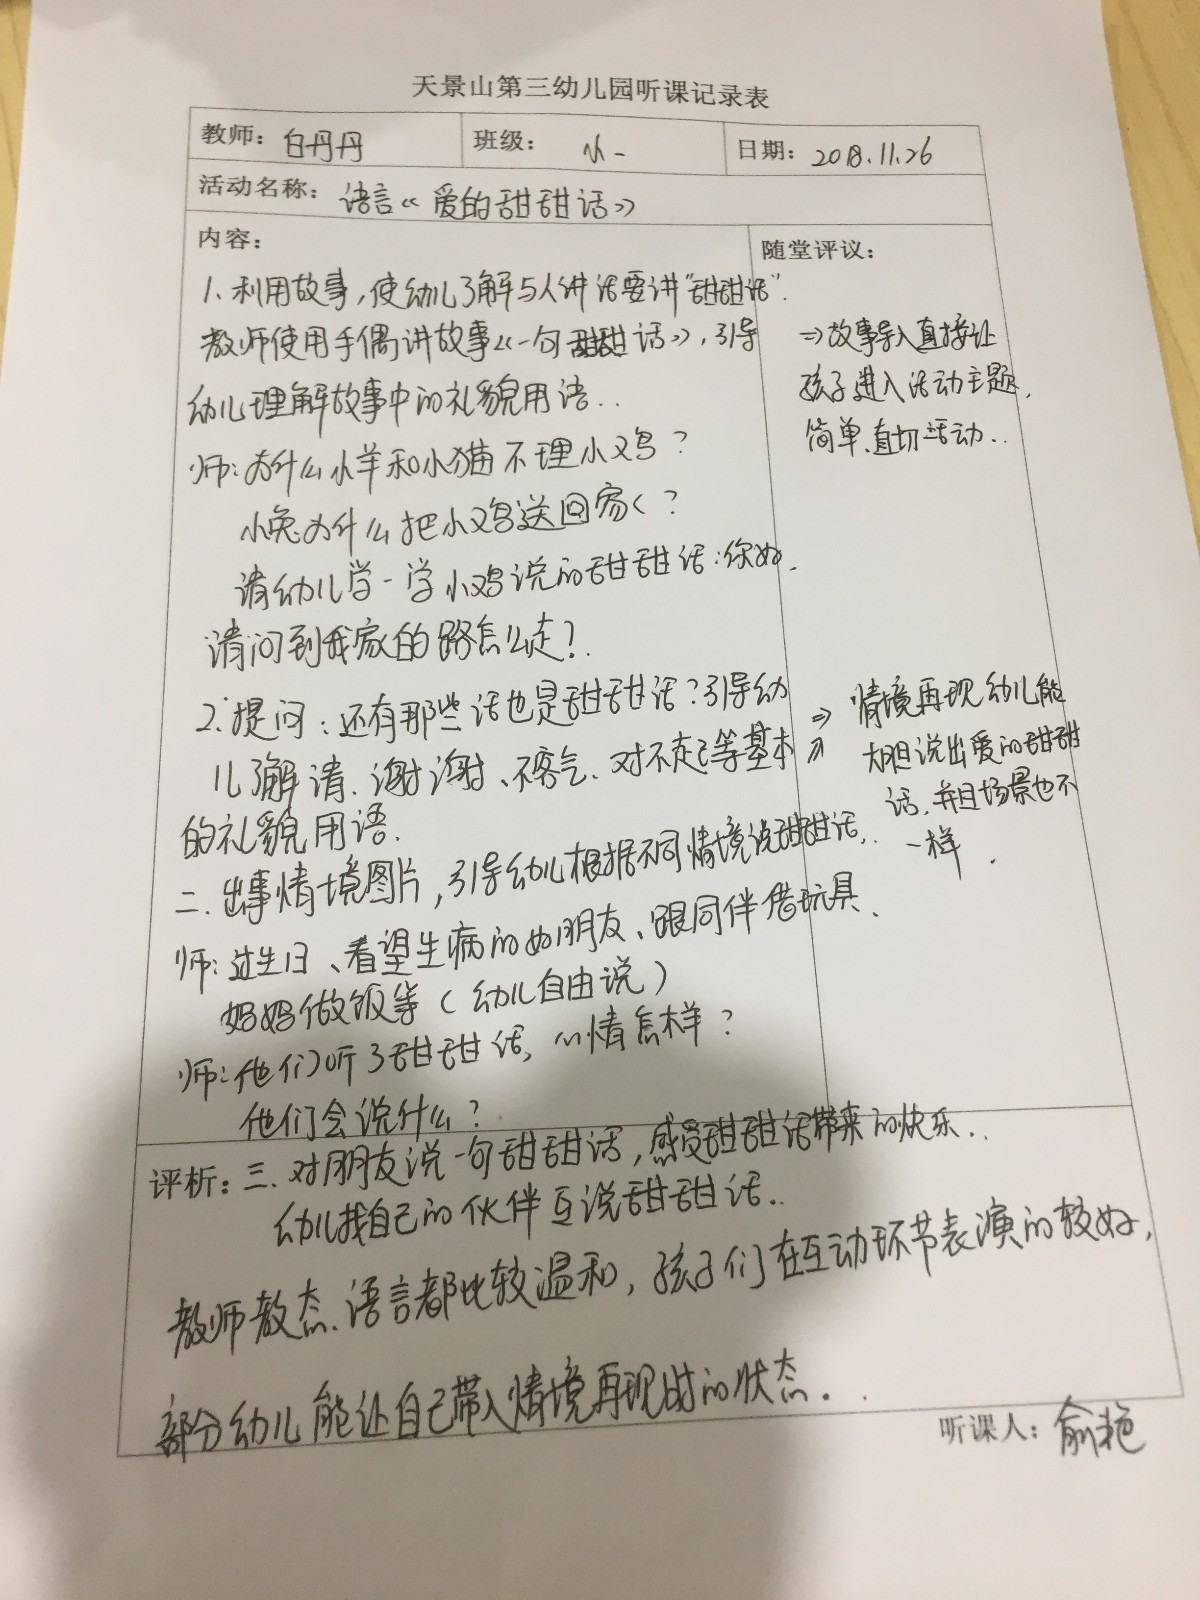 天景山第三幼儿园听课记录表
教师：白丹丹 班级：小一 日期：2018.11.26
活动名称：语言《爱的甜甜话》
内容：
1、利用故事，使幼儿了解与人讲话要讲“甜甜话”.
教师使用手偶讲故事《一句甜甜话》，引导
幼儿理解故事中的礼貌用语..
师：为什么小羊和小猫不理小鸡？
小兔为什么把小鸡送回家？
请幼儿学一学小鸡说的甜甜话：你好.
请问到我家的路怎么走？.
2. 提问：还有那些话也是甜甜话？引导幼
儿了解请、谢谢、不客气、对不起等基本
的礼貌用语.
二. 出事情境图片，引导幼儿根据不同情境说甜甜话..
师：过生日、看望生病的好朋友、跟同伴借玩具、
妈妈做饭等（幼儿自由说）
师：他们听了甜甜话，心情怎样？
他们会说什么？
随堂评议：
⇒故事导入直接让
孩子进入活动主题，
简单、直切活动..
⇒情境再现幼儿能
大胆说出爱的甜甜
话，并且场景也不
一样.
评析：三. 对朋友说一句甜甜话，感受甜甜话带来的快乐..
幼儿找自己的伙伴互说甜甜话..
教师教态、语言都比较温和，孩子们在互动环节表演的较好，
部分幼儿能让自己带入情境再现时的状态。..
听课人：俞艳